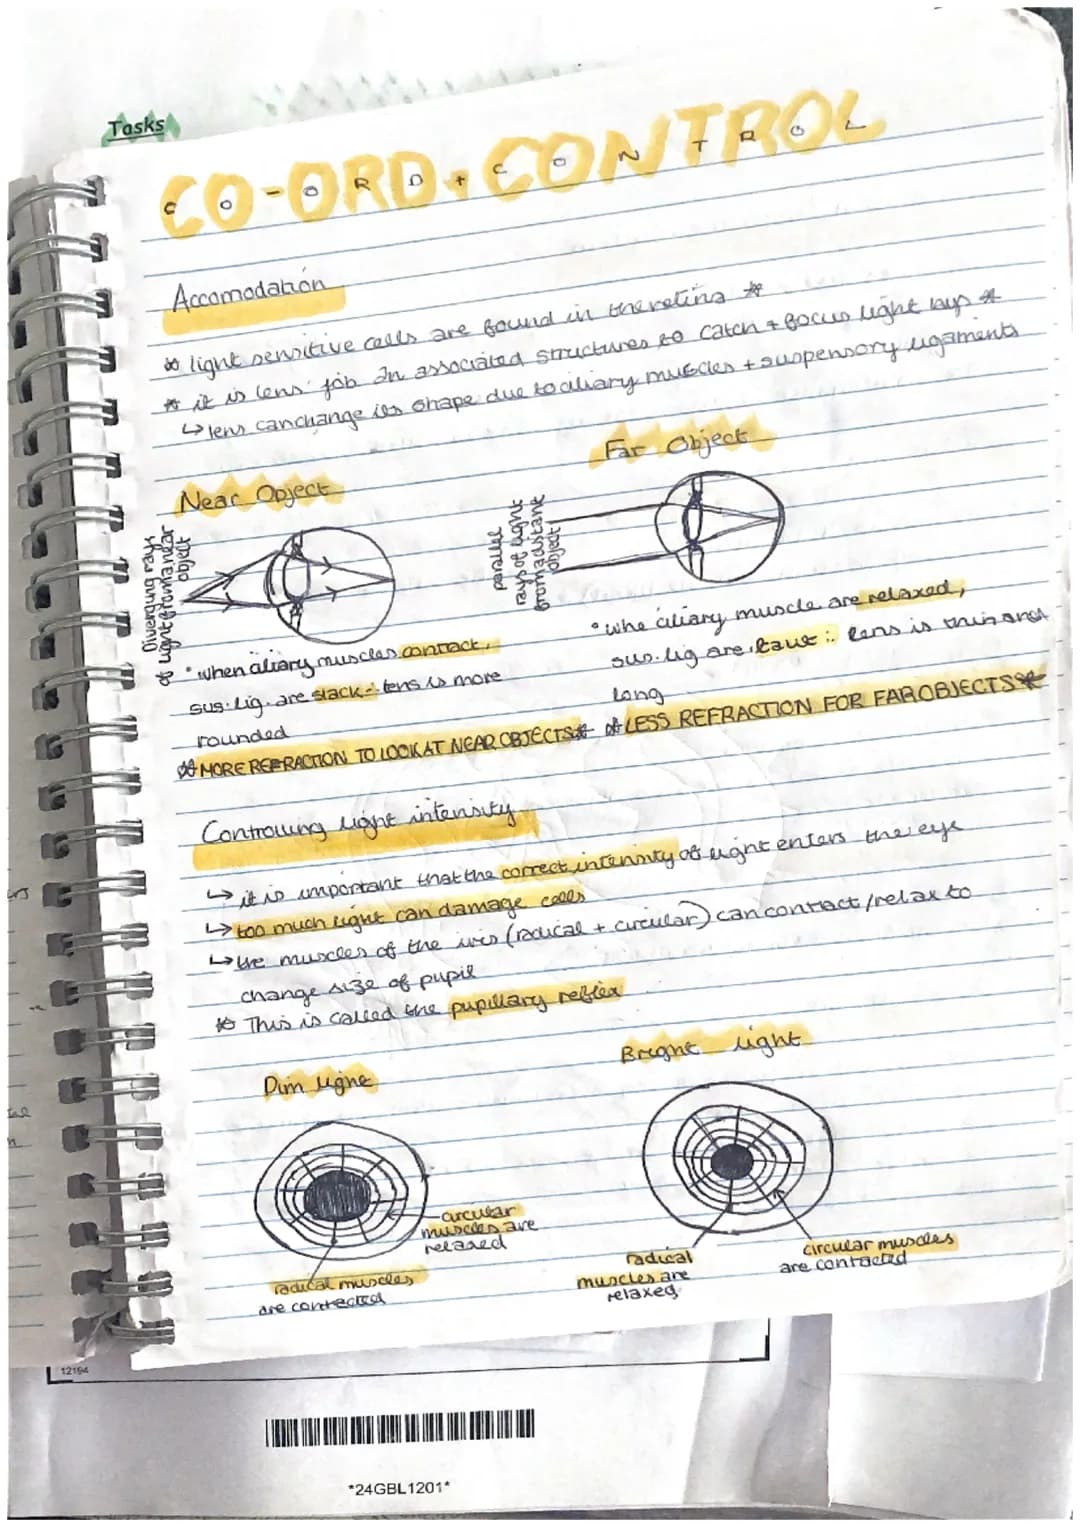 Tasks
CO-ORD+CONTROL
C O - O R D + C O N T R O L
Accomodation
☆ light sensitive cells are found in the retina ☆
☆ it is lens' job an associated structures to catch + focus light rays ☆
↳ lens can change its shape due to ciliary muscles + suspensory ligaments
Near Object
Far Object
Diverging rays
of light from a near
object
parallel
rays of light
from a distant
object
• when ciliary muscles contract,
sus. lig. are slack ∴ lens is more
rounded
• whe ciliary muscle are relaxed,
sus. lig are taut ∴ lens is thin and
long
☆ MORE REFRACTION TO LOOK AT NEAR OBJECTS ☆
☆ LESS REFRACTION FOR FAR OBJECTS ☆
Controlling light intensity
↳ it is important that the correct intensity of light enters the eye
↳ too much light can damage cells
↳ the muscles of the iris (radical + circular) can contract/relax to
change size of pupil
☆ This is called the pupillary reflex
Dim light
Bright light
circular
muscles are
relaxed
radical muscles
are contracted
radical
muscles are
relaxed
circular muscles
are contracted
12194
*24GBL1201*